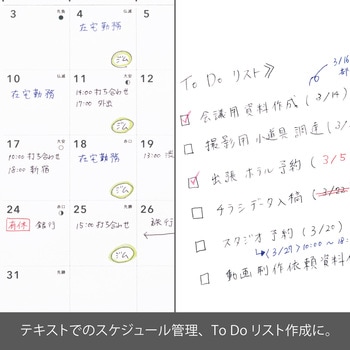 3 先負
在宅勤務
4 仏滅
ジム
5
10 仏滅
在宅勤務
11 大安
14:00 打ち合わせ
17:00 外出
ジム
12
17 大安
10:00 打ち合わせ
18:00 新宿
18 赤口
在宅勤務
ジム
19
13:00
24 赤口
有休 銀行
25 先勝
15:00 打ち合わせ
ジム
26
銀行
31 先勝
To Do リスト》
3/16
会議用資料作成 (3/14)
撮影用 小道具 調達 (3/
出張 ホテル 予約 (3/5
チラシデータ入稿 (3/22
スタジオ予約 (3/20)
(3/27) 10:00 ~ 18:
動画制作依頼資料作
テキストでのスケジュール管理、To Do リスト作成に。